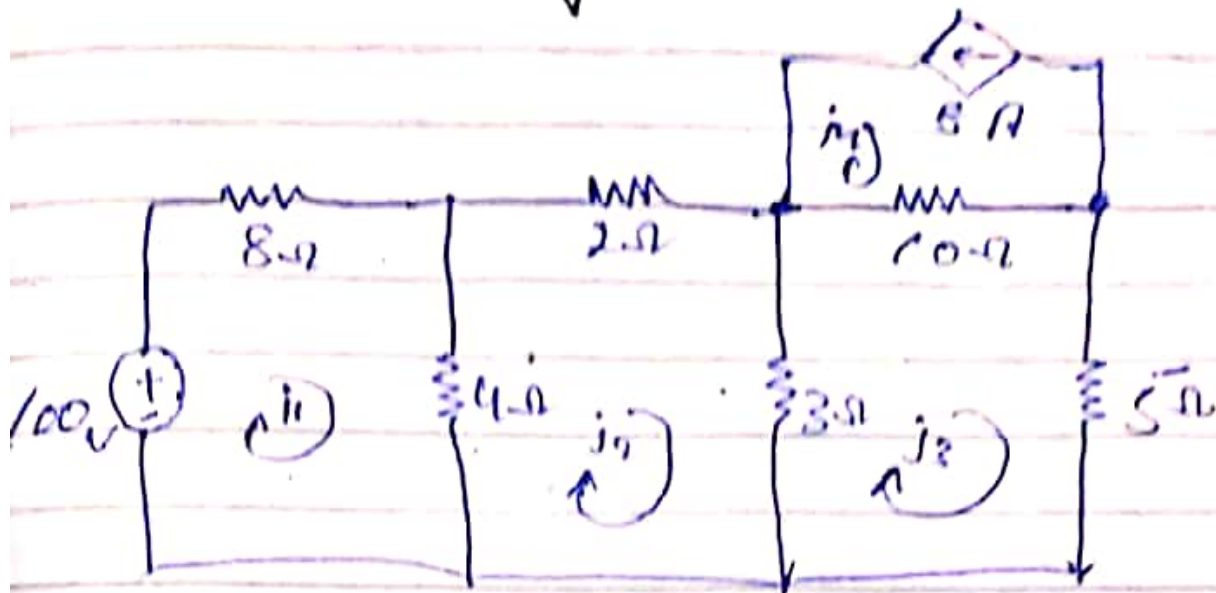 8 A
i4
8Ω
2Ω
10Ω
100v
+
-
i1
4Ω
i2
3Ω
i3
5Ω